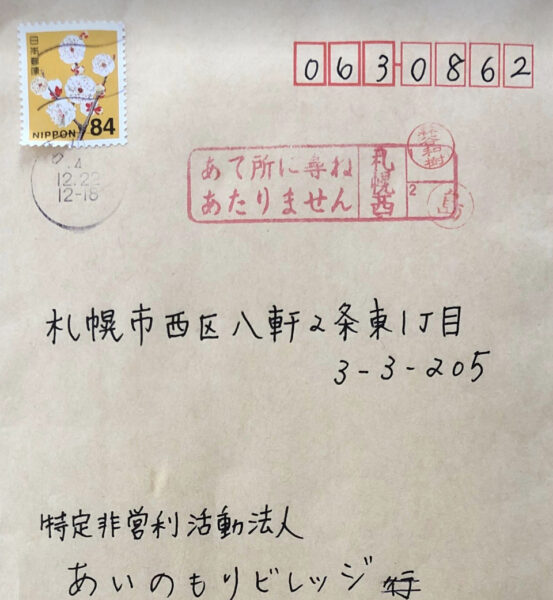 日本郵便
NIPPON 84
063-0862
4
12.22
12-18
あて所に尋ね
あたりません
札幌西
1
2
島
札幌市西区八軒2条東1丁目
3-3-205
特定非営利活動法人
あいのもりビレッジ 行